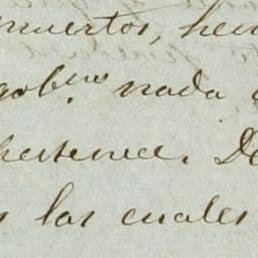 muertos, he
gob.no nada
pertenece. De
s las cuales